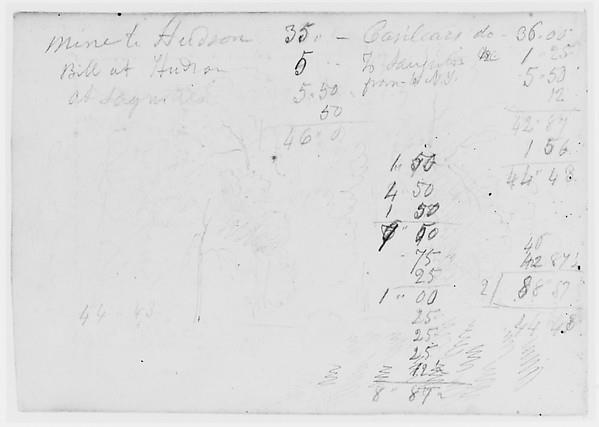 Mine to Hudson 35" — Casilears do - 36.00
Bill at Hudson 5
To Saugerties 1 25
from N.Y. 5.50
at Saugerties 5.50
12
50
42"87
46"0
1 56
44"43
1" 50
4 50
1 50
7" 50
75
25
1" 00
25
25
25
12½
8" 87½
46
42 87½
2 88"87
44 43
44 - 43